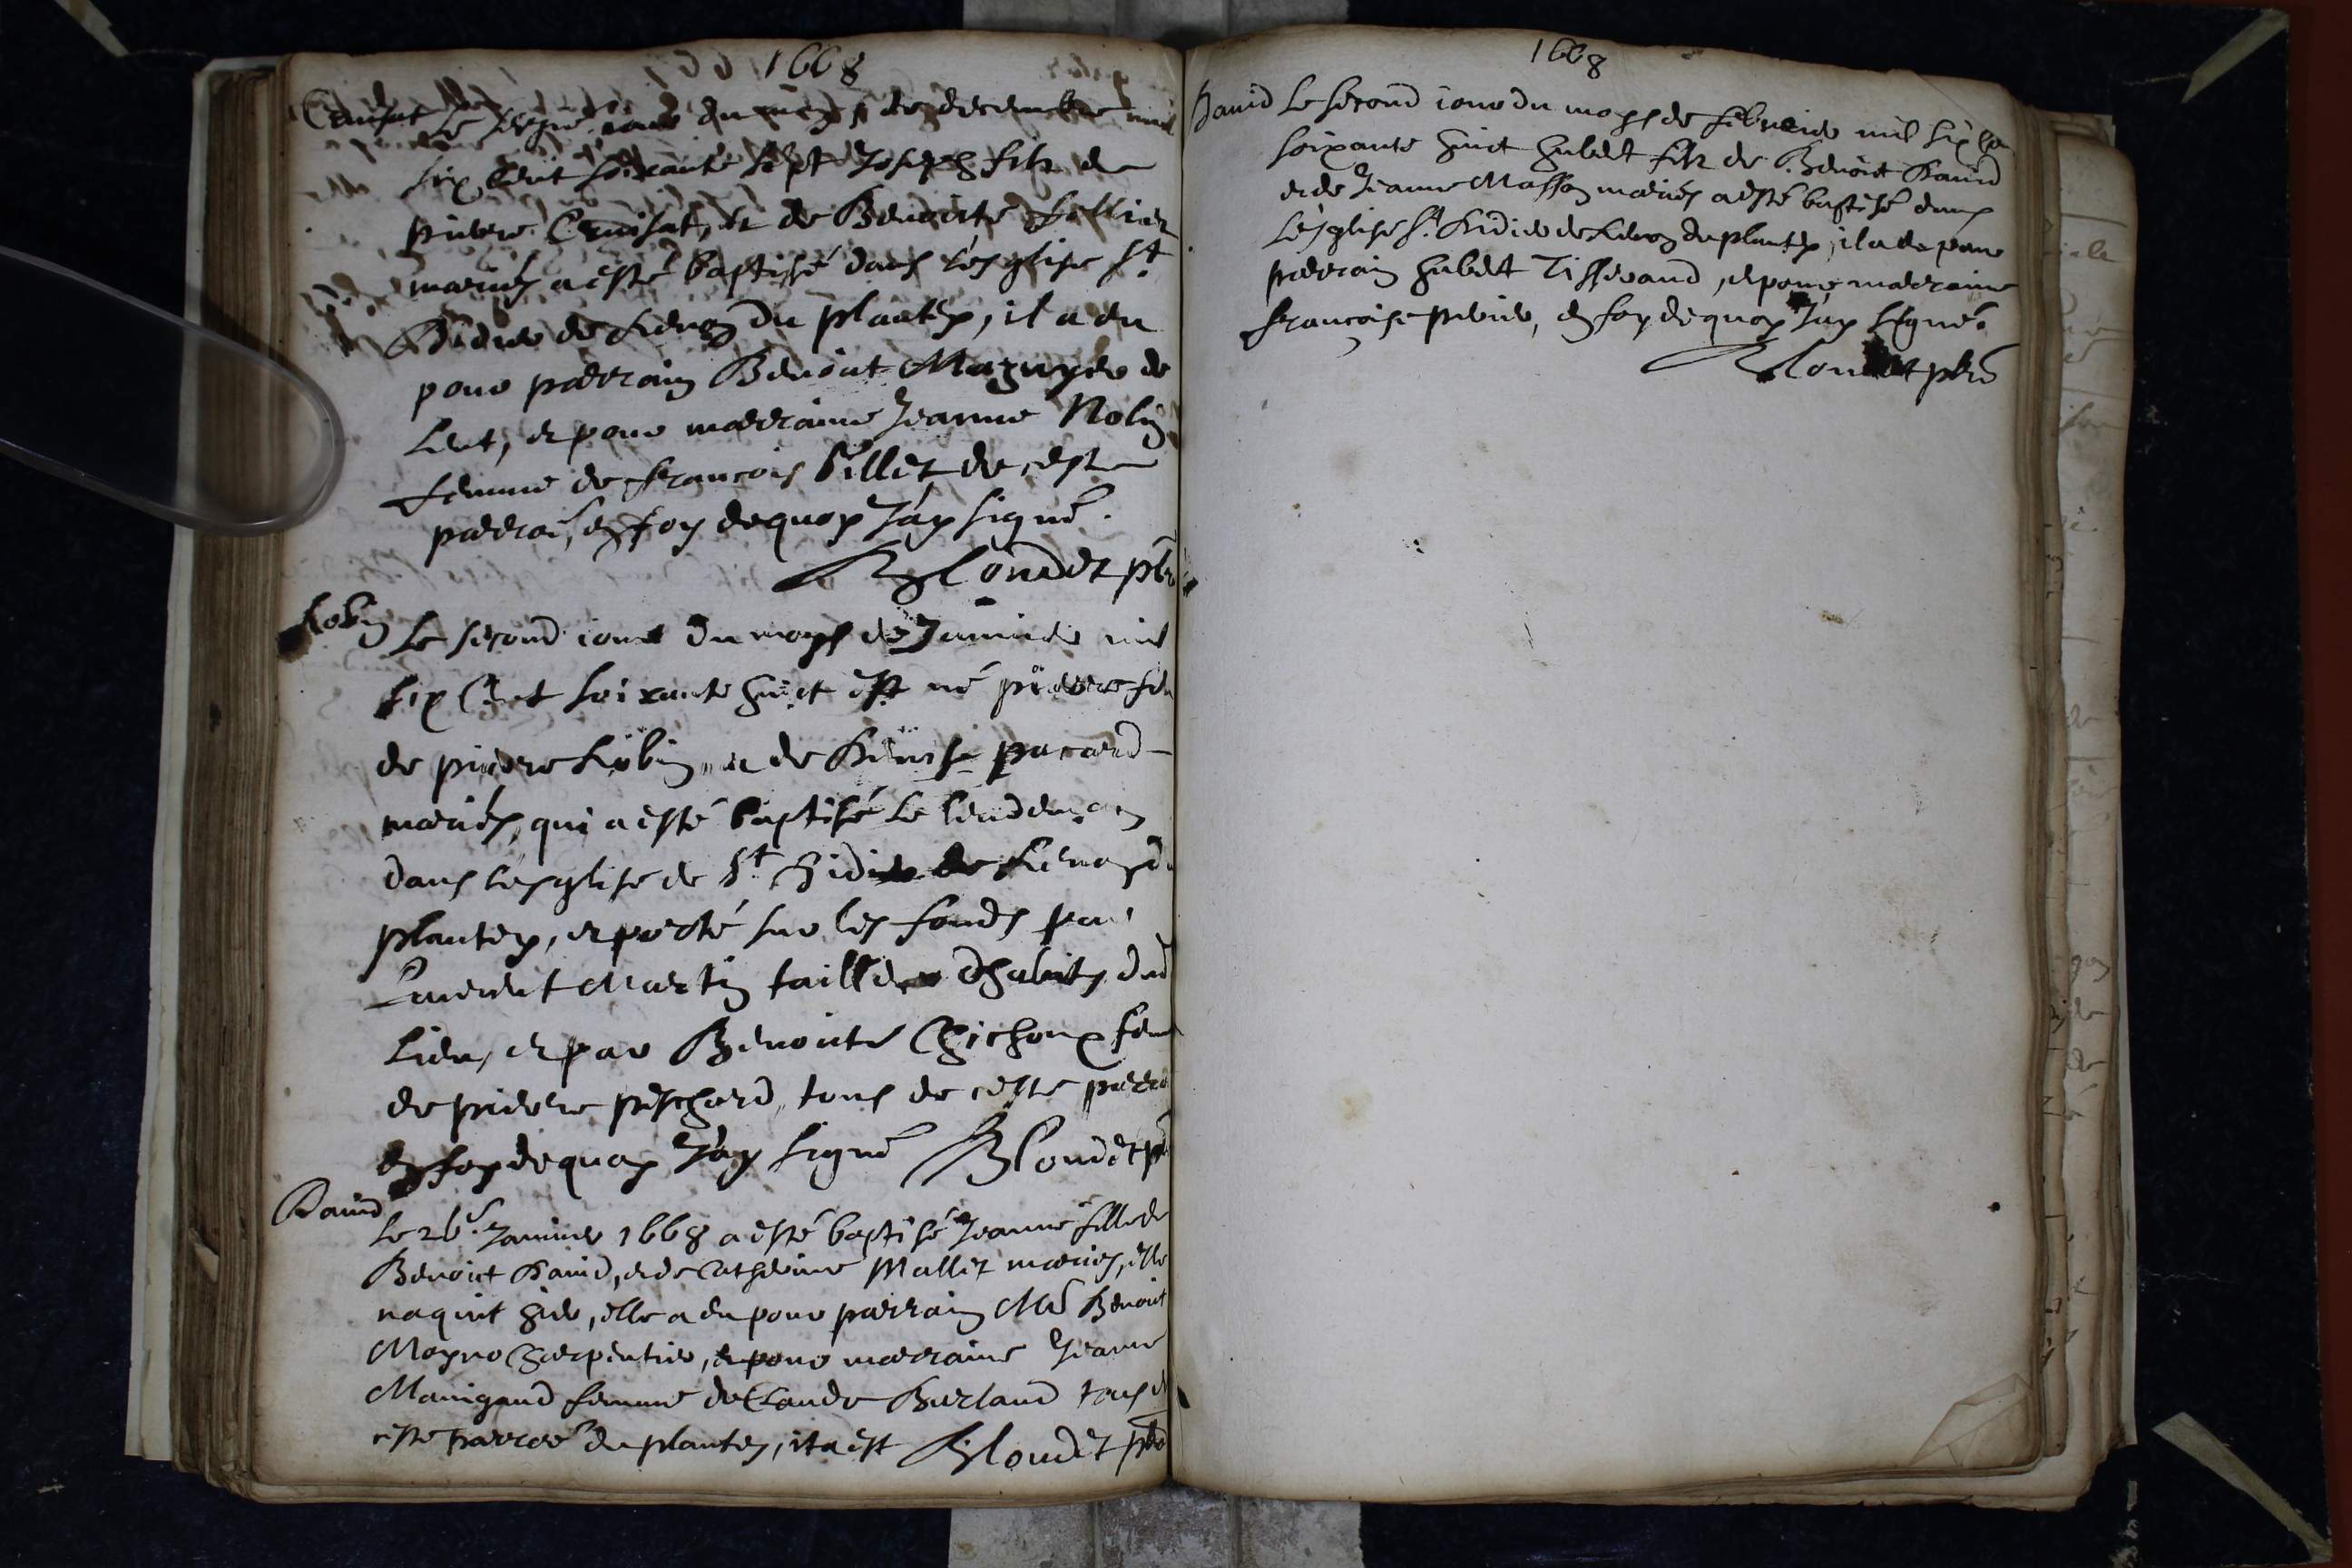 1668
Cruisat Le jour du moys de decembre mil
six cent soixante sept Joseph filz de
pierre Cruisat, et de Benoiste
mariés a esté baptisé dans lesglise St
Didier de Renon du plantey, il a eu
pour parrain Benoist Maguyer de
et pour marraine Jeanne Nolin
femme de francois billet de ceste
parroi, en foy dequoy J'ay signé.
Blondet pbre
Robin Le second iour du moys de Januier mil
six Cent soixante huict est né pierre filz
de pierre Robin, et de Denise pacard
mariés, qui a esté baptisé le lendemain
dans lesglise de St Didier de Renon du
plantey, et porté sur les fonds par
Laurent Martin tailleur d'habits dud
lieu, et par Benoiste Chichoux fem
de pierre peschard, tous de ceste parro
en foy dequoy J'ay signé Blondet pbre
Dauid
Le 26e. Januier 1668 a esté baptisé Jeanne fille de
Benoist Dauid, et de Catherine Mallet mariés, elle
naquit hier, elle a eu pour parrain Me Benoist
Moyno Charpentier, et pour marraine Jeanne
Manigand femme de Claude Burland tous de
ceste parroe du plantey, ita est Blondet pbre
1668
Dauid Le second iour du moys de febvrier mil six ce
soixante huict hubert filz de Benoist Dauid
et de Jeanne Masson mariés a esté baptisé dans
Lesglise St. Didier de Renon du plantey, il a eu pour
parrain hubert Tisserand, et pour marraine
francoise perier, en foy dequoy J'ay signé.
Blondet pbre